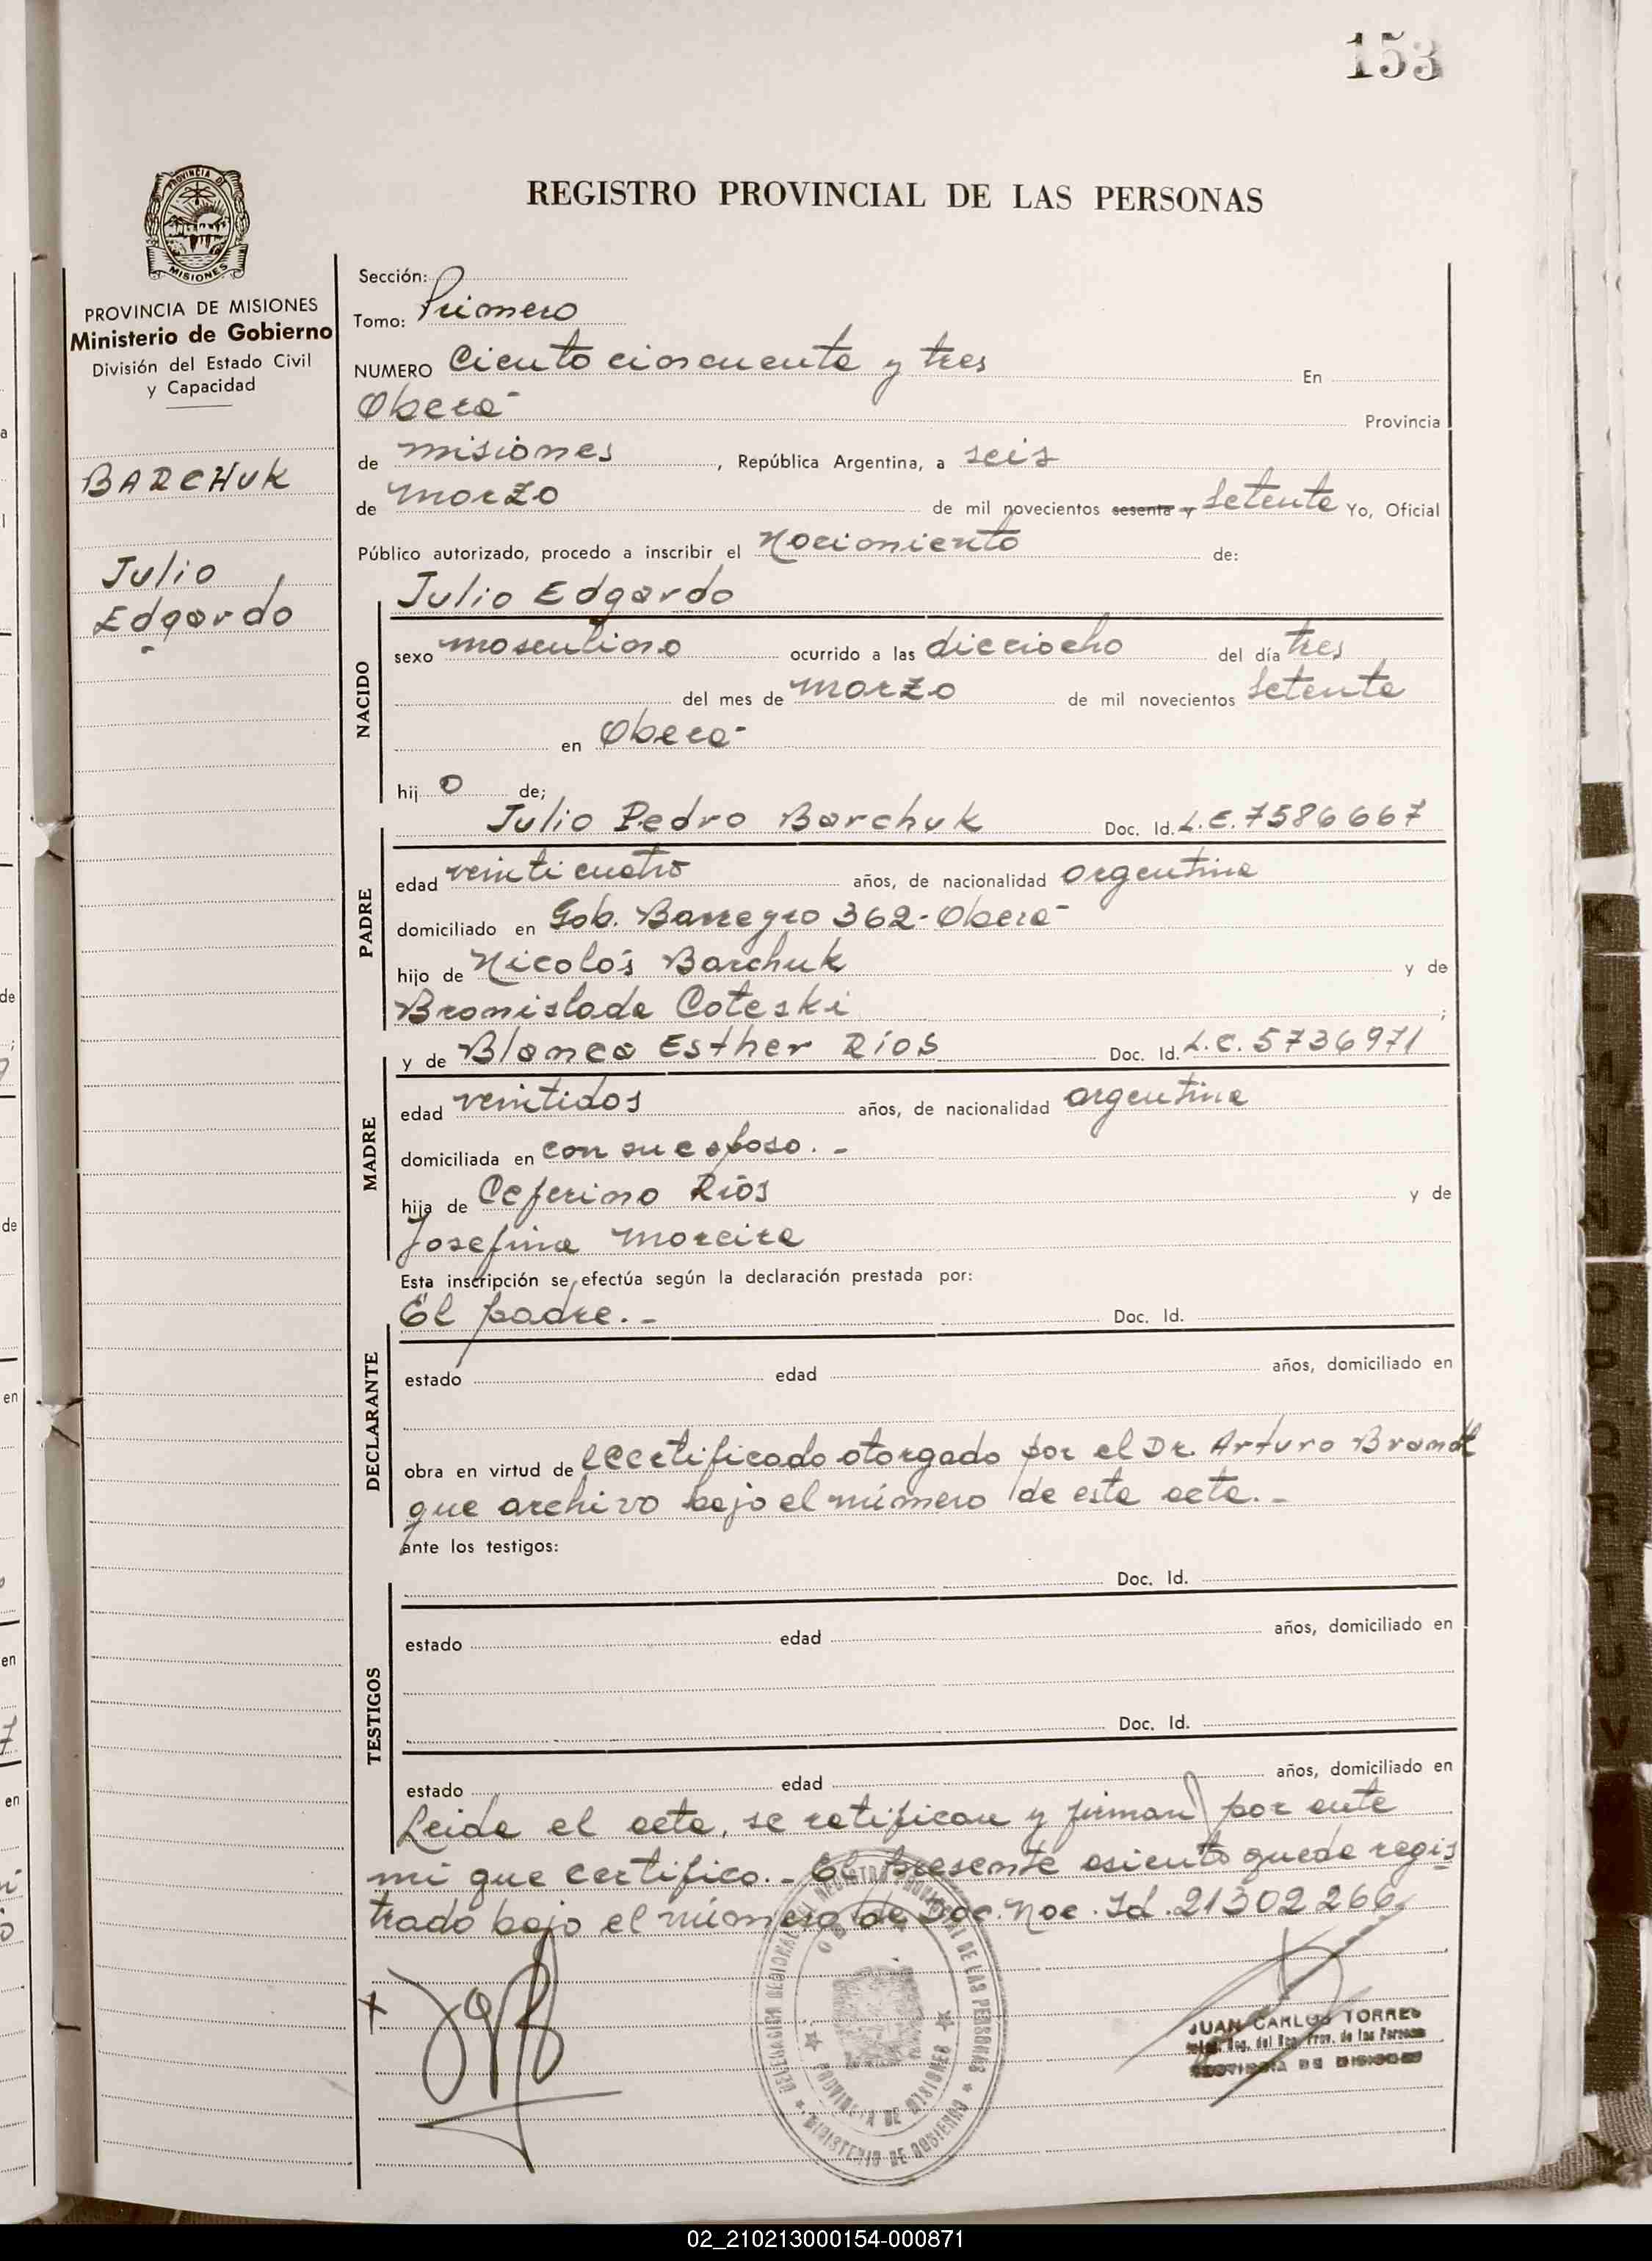 153
REGISTRO PROVINCIAL DE LAS PERSONAS
PROVINCIA DE
MISIONES
PROVINCIA DE MISIONES
Ministerio de Gobierno
División del Estado Civil
y Capacidad
BARCHUK
Julio
Edgardo
Sección:
Tomo: Primero
NUMERO Ciento cincuenta y tres En
Oberá Provincia
de misiones, República Argentina, a seis
de marzo de mil novecientos sesenta y setenta Yo, Oficial
Público autorizado, procedo a inscribir el Nacimiento de:
Julio Edgardo
NACIDO
sexo masculino ocurrido a las dieciocho del día tres
del mes de marzo de mil novecientos setenta
en Oberá-
hij o de;
Julio Pedro Barchuk Doc. Id. L.E. 7586667
PADRE
edad veinticuatro años, de nacionalidad argentina
domiciliado en Gob. Barreyro 362-Oberá-
hijo de Nicolás Barchuk y de
Bronislada Coteski ;
y de Blanca Esther Ríos Doc. Id. L.C. 5736971
MADRE
edad venitidos años, de nacionalidad argentina
domiciliada en con su esposo. -
hija de Ceferino Ríos y de
Josefina Moreira
Esta inscripción se efectúa según la declaración prestada por:
El padre. - Doc. Id.
DECLARANTE
estado edad años, domiciliado en
obra en virtud de certificado otorgado por el Dr. Arturo Brandt
que archivo bajo el número de esta acta. -
ante los testigos:
Doc. Id.
TESTIGOS
estado edad años, domiciliado en
Doc. Id.
estado edad años, domiciliado en
Leida el acta, se ratifican y firman por ante
mi que certifico. - El presente asiento queda regis
trado bajo el número de Doc. Nac. Id. 21302266
DELEGACION REGIONAL DEL REGISTRO PROVINCIAL DE LAS PERSONAS
PROVINCIA DE MISIONES
MINISTERIO DE GOBIERNO
JUAN CARLOS TORRES
Reg. del Reg. Prov. de las Personas
PROVINCIA DE MISIONES
02_210213000154-000871